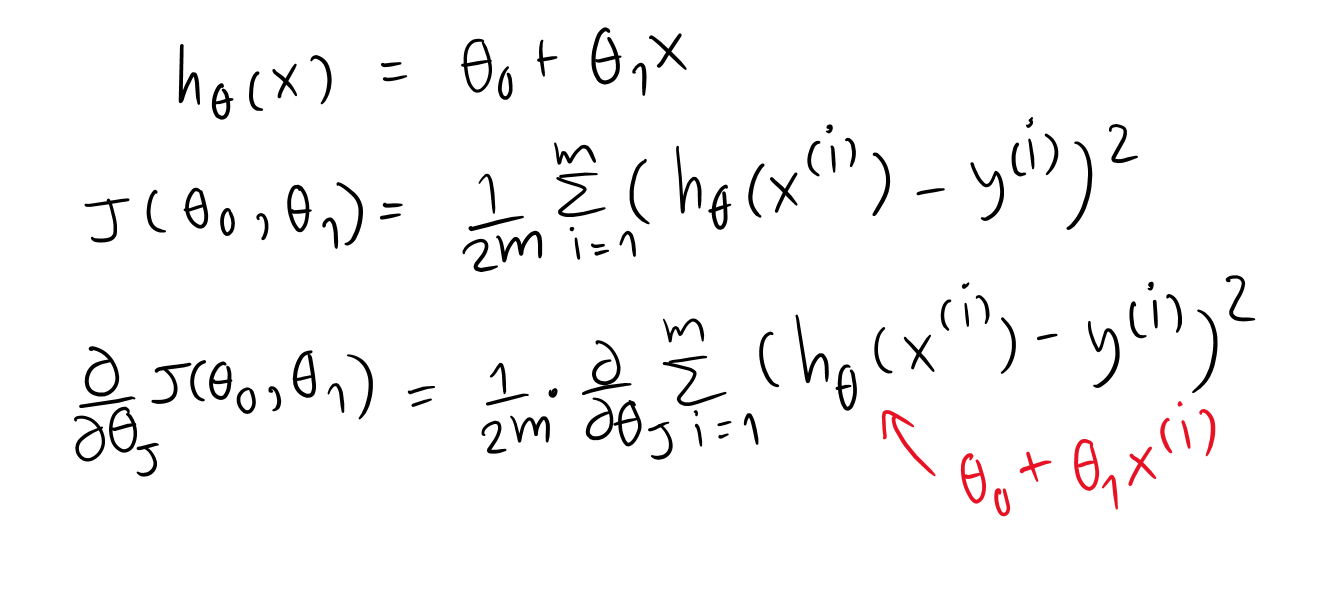 h_θ(x) = θ_0 + θ_1 x
J(θ_0, θ_1) = \frac{1}{2m} \sum_{i=1}^{m} (h_θ(x^{(i)}) - y^{(i)})^2
\frac{∂}{∂θ_J} J(θ_0, θ_1) = \frac{1}{2m} · \frac{∂}{∂θ_J} \sum_{i=1}^{m} (h_θ(x^{(i)}) - y^{(i)})^2
θ_0 + θ_1 x^{(i)}